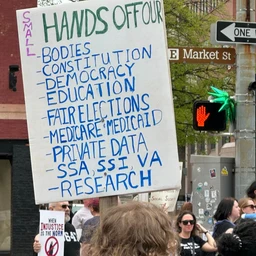 SMALL
HANDS OFF OUR
-BODIES
-CONSTITUTION
-DEMOCRACY
-EDUCATION
-FAIR ELECTIONS
-MEDICARE/MEDICAID
-PRIVATE DATA
-SSA, SSI, VA
-RESEARCH
E Market St
ONE
WHEN
INJUSTICE
IS THE NORM